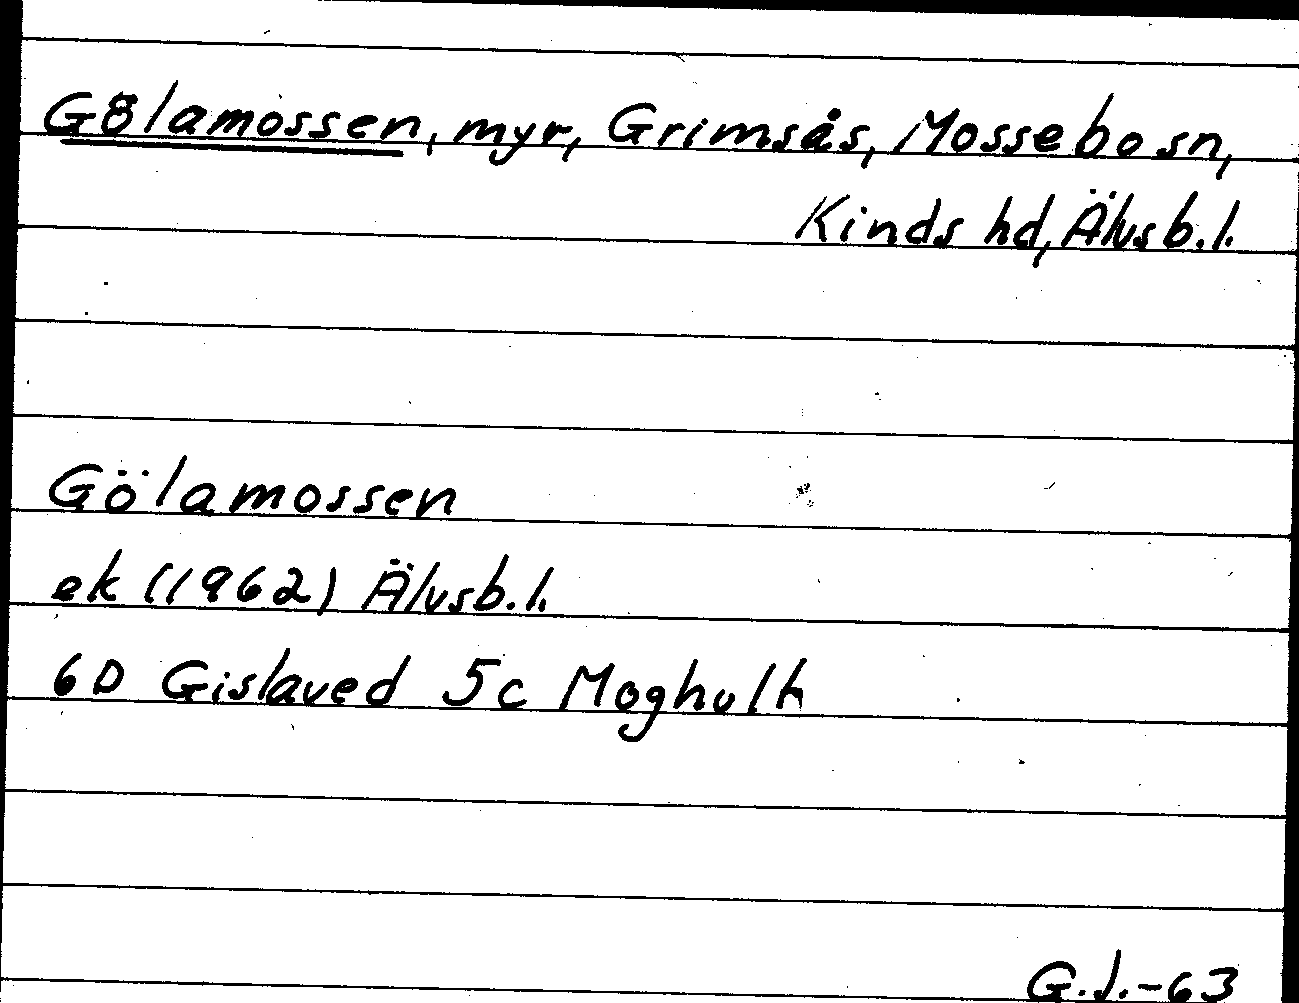 Gölamossen, myr, Grimsås, Mossebo sn,
Kinds hd, Älvsb.l.
Gölamossen
ek (1962) Älvsb.l.
6D Gislaved 5c Moghult
G.J.-63